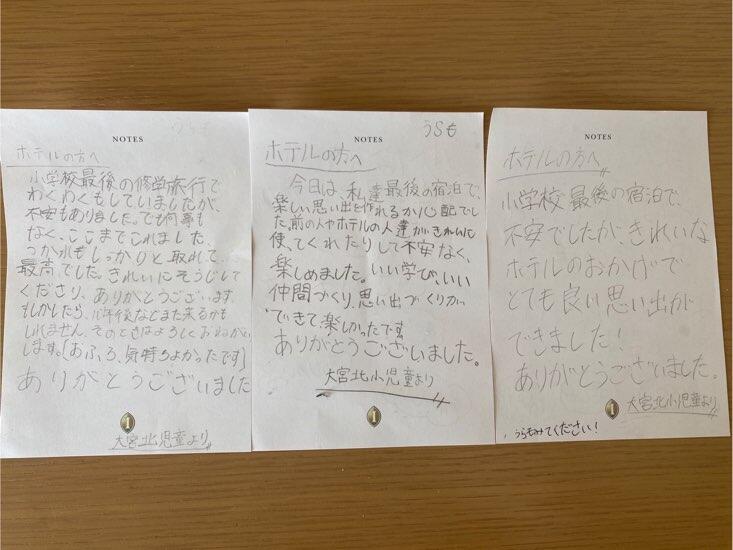 うらも
NOTES
ホテルの方へ
小学校最後の修学旅行で
わくわくもしていましたが、
不安もありました。でも何事も
なく、ここまでこれました。
つかれもしっかりと取れて、
最高でした。きれいにそうじして
くださり、ありがとうございます。
もしかしたら、10年後などまた来るかも
しれません。そのときはよろしくおねがい
します。[おふろ、気持ちよかったです]
ありがとうございました
1
大宮北児童より
うらも
NOTES
ホテルの方へ
今日は、私達最後の宿泊で、
楽しい思い出を作れるか心配でし
た。前の人やホテルの人達がきれいに
使ってくれたりして不安なく、
楽しめました。いい学び、いい
仲間づくり、思い出づくりが
できて、楽しかったです。
ありがとうございました。
大宮北小児童より
1
NOTES
ホテルの方へ
小学校最後の宿泊で、
不安でしたが、きれいな
ホテルのおかげで
とても良い思い出が
できました!
ありがとうございました。
1
大宮北小児童より
うらもみてください!